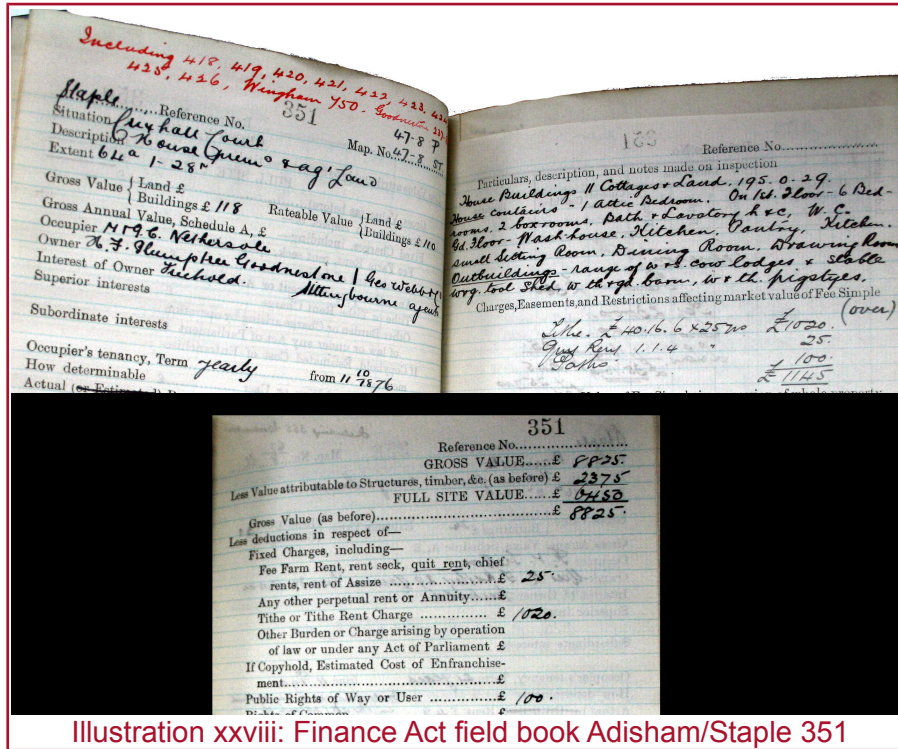 Including 418, 419, 420, 421, 422, 423, 424
425, 426, Wingham 450. Goodnestone
Staple
Reference No. 351
47-8 P
Situation Court
Map. No. 47-8 ST
Description House & ag' Land
Extent 64a 1-28r
Gross Value { Land £
Buildings £ 118
Rateable Value { Land £
Buildings £ 110
Gross Annual Value, Schedule A, £
Occupier C. Nethersole
Owner H. F. Plumptree Goodnestone | Geo Webb
Interest of Owner Freehold.
Sittingbourne agents
Superior interests
Subordinate interests
Occupier's tenancy, Term yearly from 11 10 1876
How determinable
Actual
351
Reference No.
Particulars, description, and notes made on inspection
House Buildings 11 Cottages & Land, 195.0.29.
House contains - 1 Attic Bedroom. On 1st. Floor - 6 Bed-
rooms. 2 box rooms, Bath & Lavatory h & c, W.C.
Gd. Floor - Wash house, Kitchen, Pantry, Kitchen.
small Sitting Room, Dining Room, Drawing Room
Outbuildings - range of w & s. cow lodges & stable
tool shed, w th & gd. barn, w & th. pigstyes.
Charges, Easements, and Restrictions affecting market value of Fee Simple
(over)
Tithe. £40.16.6 x 25 £1020.
Quit Rent 1.1.4 " 25.
Paths 100.
£1145
351
Reference No.
GROSS VALUE......£ 8825.
Less Value attributable to Structures, timber, &c. (as before) £ 2375
FULL SITE VALUE......£ 6450
Gross Value (as before)......£ 8825.
Less deductions in respect of—
Fixed Charges, including—
Fee Farm Rent, rent seck, quit rent, chief
rents, rent of Assize ......£ 25.
Any other perpetual rent or Annuity......£
Tithe or Tithe Rent Charge ......£ 1020.
Other Burden or Charge arising by operation
of law or under any Act of Parliament £
If Copyhold, Estimated Cost of Enfranchise-
ment......£
Public Rights of Way or User ......£ 100.
Rights of Common £
Illustration xxviii: Finance Act field book Adisham/Staple 351